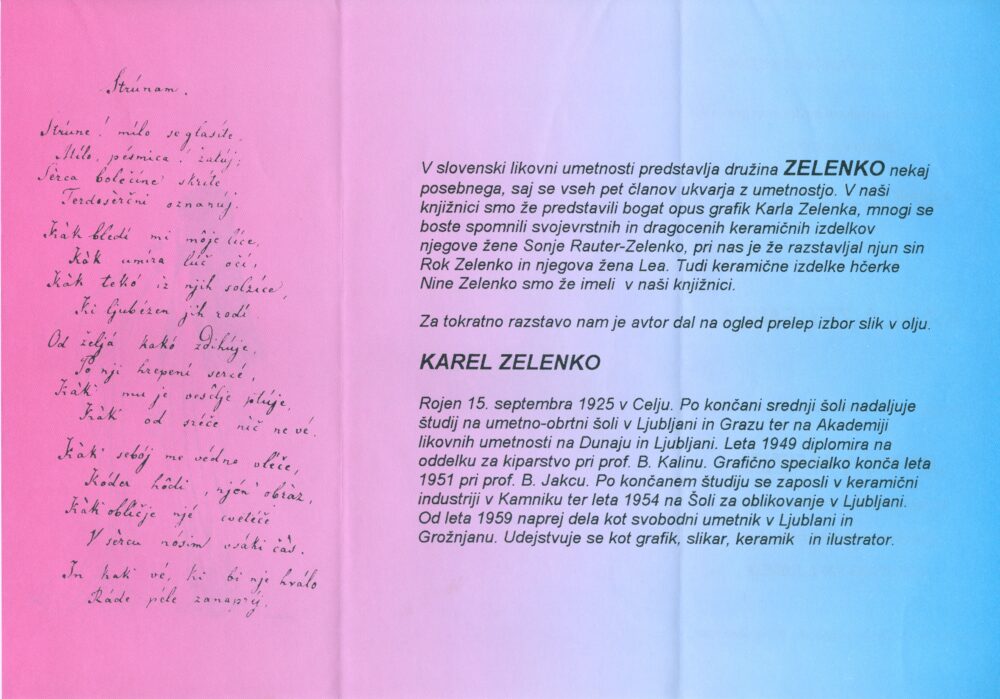 Strúnam.
Strúne! milo se glasíte,
Mílo, pésmica! žalúj;
Sérca bolečíne skríte
Terdoserčni oznanúj.
Kàk bledí mi môje líce,
Kàk umíra lúč očí,
Kàk tekó iz njih solzíce,
Ki ljubézen jih rodí.
Od željá kakó zdihúje,
Po nji hrepení sercé,
Kàk mu je vesêlje ptúje,
Kàk od sréče nič ne vé.
Kàk sebój me védno vléče,
Kóder hôdi, njén obràz,
Kàk oblíčje njé cvetéče
V sêrcu nósim vsáki čàs.
In kak vé, ki bi nje hválo
Ráde péle zanaprèj,
V slovenski likovni umetnosti predstavlja družina ZELENKO nekaj
posebnega, saj se vseh pet članov ukvarja z umetnostjo. V naši
knjižnici smo že predstavili bogat opus grafik Karla Zelenka, mnogi se
boste spomnili svojevrstnih in dragocenih keramičnih izdelkov
njegove žene Sonje Rauter-Zelenko, pri nas je že razstavljal njun sin
Rok Zelenko in njegova žena Lea. Tudi keramične izdelke hčerke
Nine Zelenko smo že imeli v naši knjižnici.
Za tokratno razstavo nam je avtor dal na ogled prelep izbor slik v olju.
KAREL ZELENKO
Rojen 15. septembra 1925 v Celju. Po končani srednji šoli nadaljuje
študij na umetno-obrtni šoli v Ljubljani in Grazu ter na Akademiji
likovnih umetnosti na Dunaju in Ljubljani. Leta 1949 diplomira na
oddelku za kiparstvo pri prof. B. Kalinu. Grafično specialko konča leta
1951 pri prof. B. Jakcu. Po končanem študiju se zaposli v keramični
industriji v Kamniku ter leta 1954 na Šoli za oblikovanje v Ljubljani.
Od leta 1959 naprej dela kot svobodni umetnik v Ljublani in
Grožnjanu. Udejstvuje se kot grafik, slikar, keramik in ilustrator.